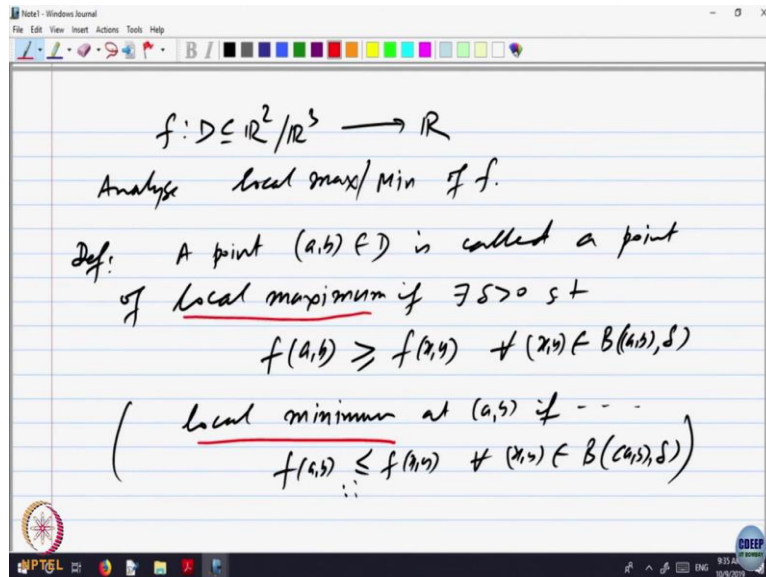 Note1 - Windows Journal
File Edit View Insert Actions Tools Help
B I
f : D ⊆ ℝ² / ℝ³ ⟶ ℝ
Analyse local max / Min of f.
Def: A point (a,b) ∈ D is called a point
of local maximum if ∃ δ > 0 s t
f(a,b) ≥ f(x,y) ∀ (x,y) ∈ B((a,b), δ)
( local minimum at (a,b) if - - -
f(a,b) ≤ f(x,y) ∀ (x,y) ∈ B((a,b), δ) )
CDEEP
IIT BOMBAY
NPTEL
ENG
9:35 A
10/9/2019